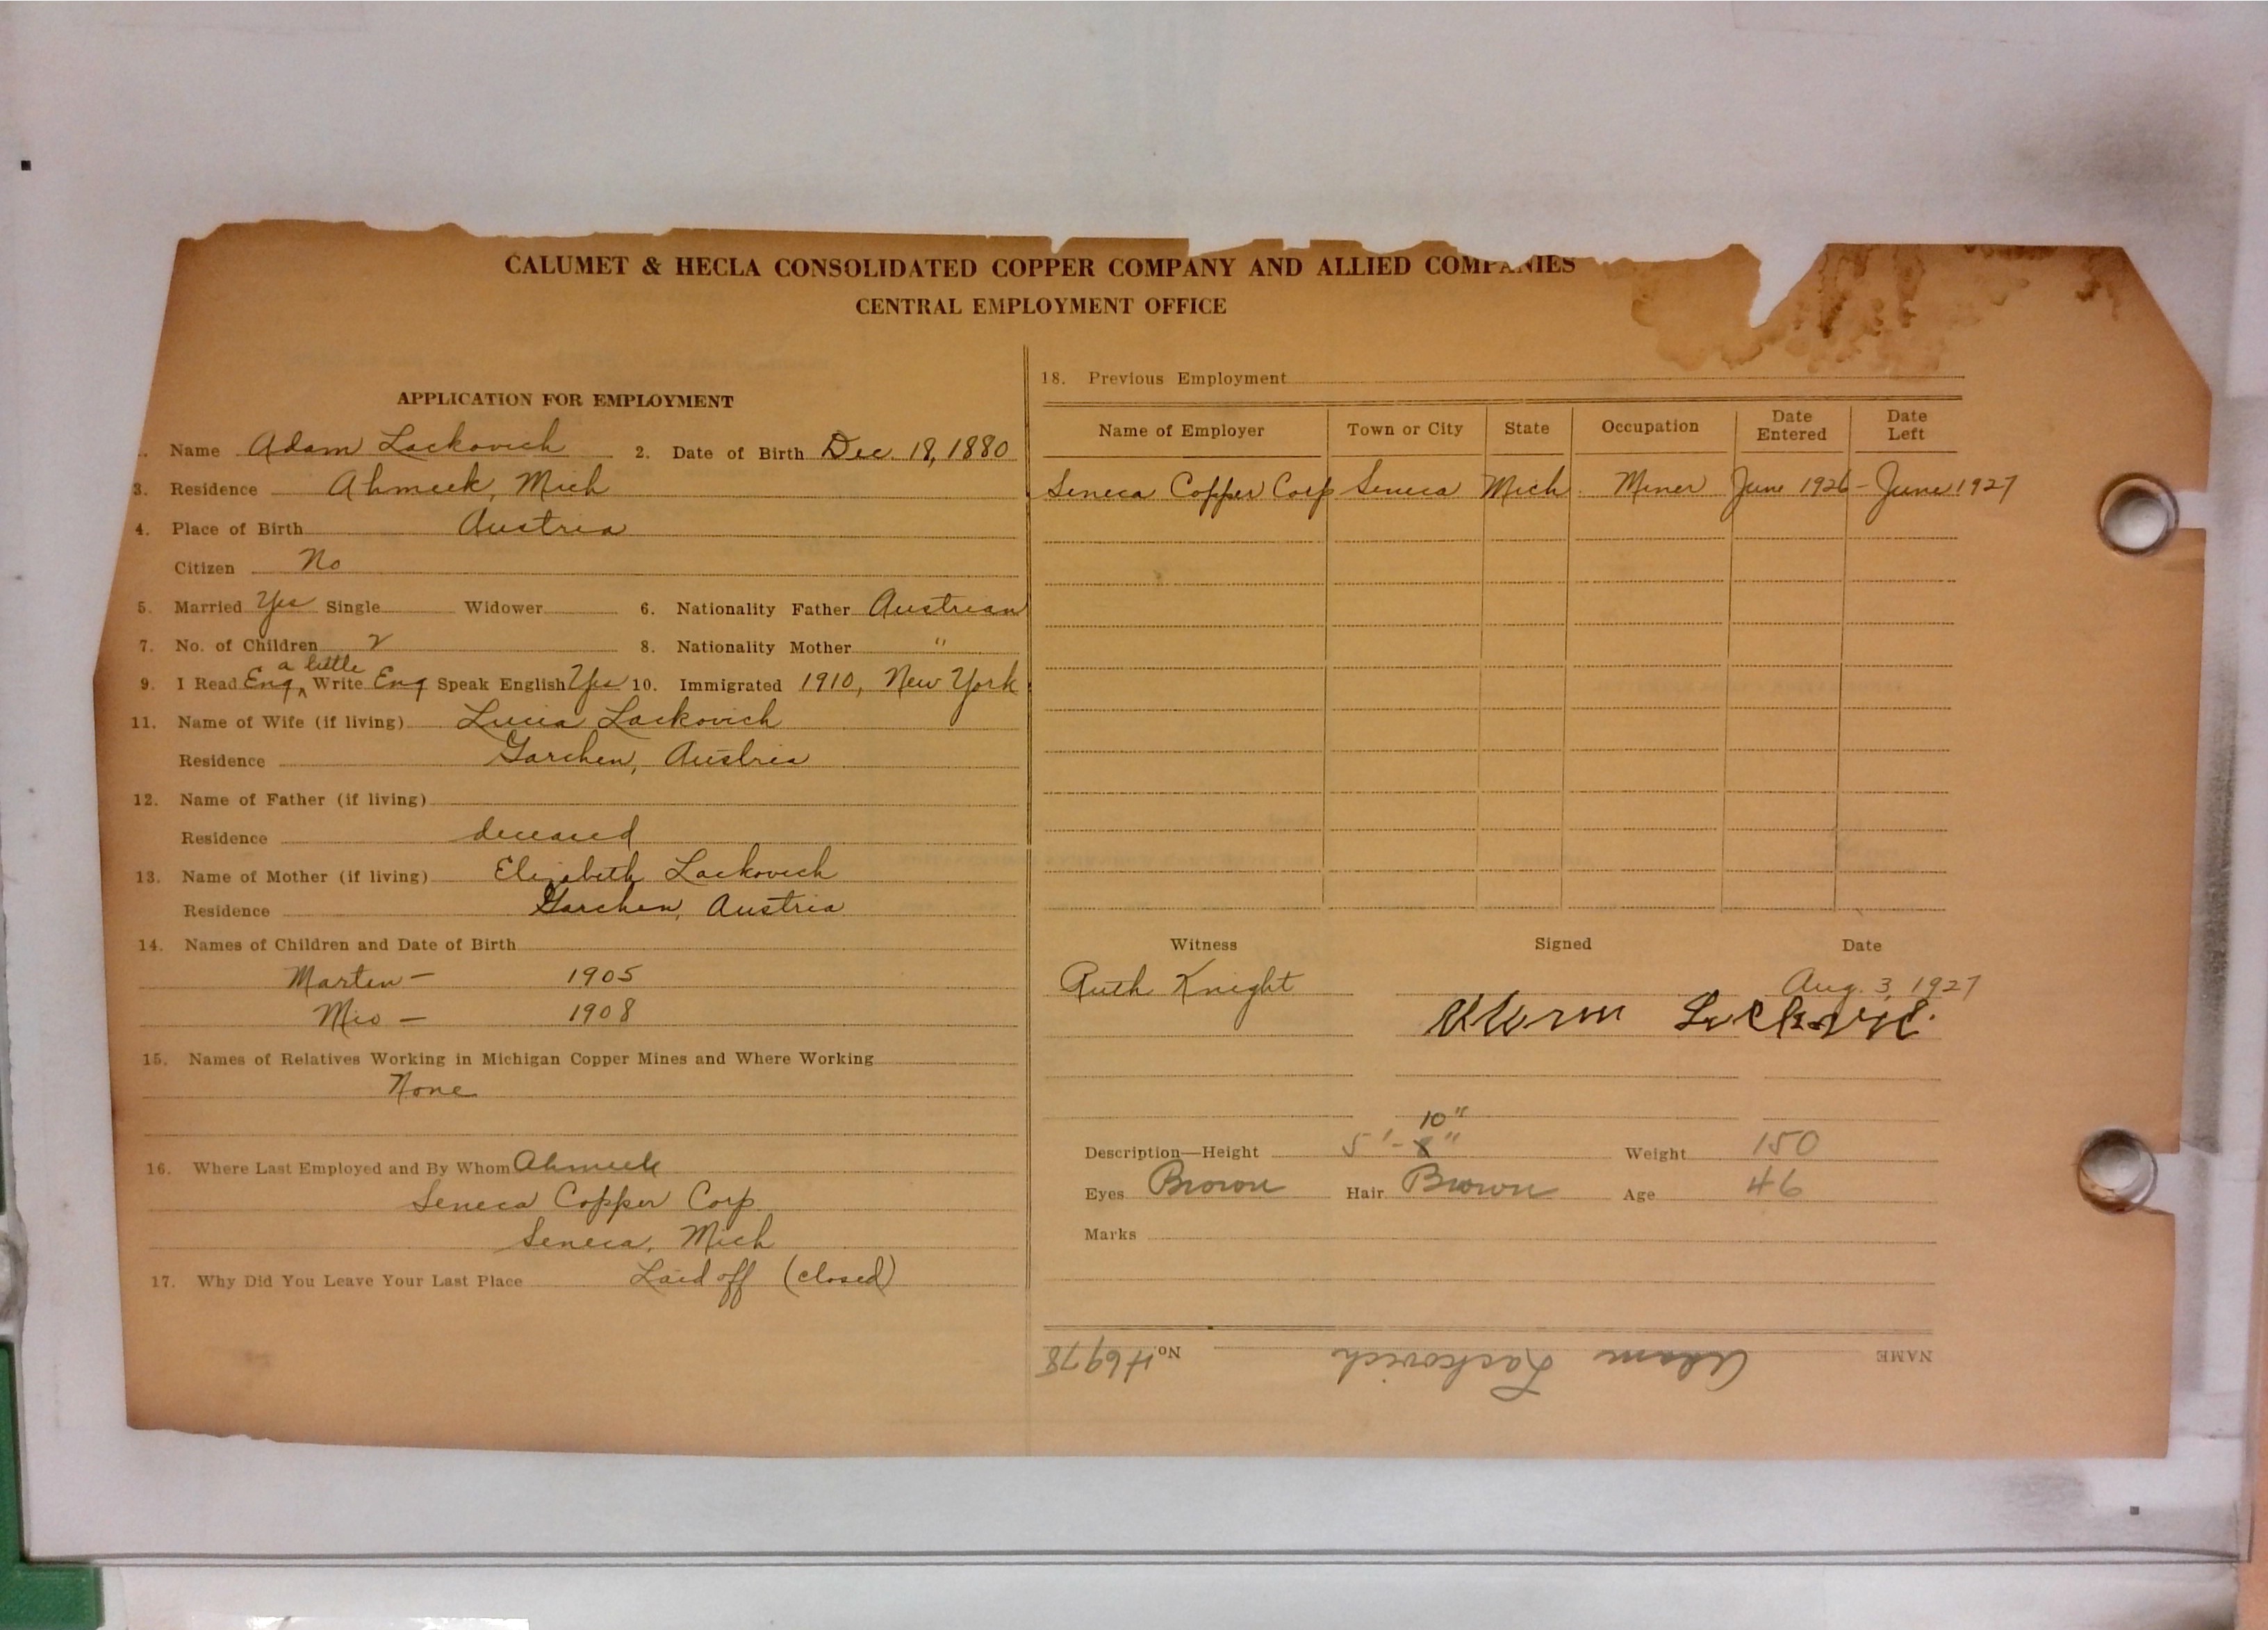 CALUMET & HECLA CONSOLIDATED COPPER COMPANY AND ALLIED COMPANIES
CENTRAL EMPLOYMENT OFFICE
APPLICATION FOR EMPLOYMENT
Name Adam Lackovich 2. Date of Birth Dec. 18, 1880
3. Residence Ahmeek, Mich
4. Place of Birth Austria
Citizen No
5. Married Yes Single Widower 6. Nationality Father Austrian
7. No. of Children 2 8. Nationality Mother "
9. I Read Eng a little Write Eng Speak English Yes 10. Immigrated 1910, New York
11. Name of Wife (if living) Lucia Lackovich
Residence Garchen, Austria
12. Name of Father (if living)
Residence deceased
13. Name of Mother (if living) Elizabeth Lackovich
Residence Garchen, Austria
14. Names of Children and Date of Birth
Marten - 1905
Mio - 1908
15. Names of Relatives Working in Michigan Copper Mines and Where Working
None
16. Where Last Employed and By Whom Ahmeek
Seneca Copper Corp.
Seneca, Mich
17. Why Did You Leave Your Last Place Laid off (closed)
18. Previous Employment
Name of Employer Town or City State Occupation Date Entered Date Left
Seneca Copper Corp Seneca Mich. Miner June 1926 - June 1927
Witness Signed Date
Ruth Knight Aug. 3, 1927
10"
Description—Height 5'-8" Weight 150
Eyes Brown Hair Brown Age 46
Marks
NAME Adam Lackovich No. 46978